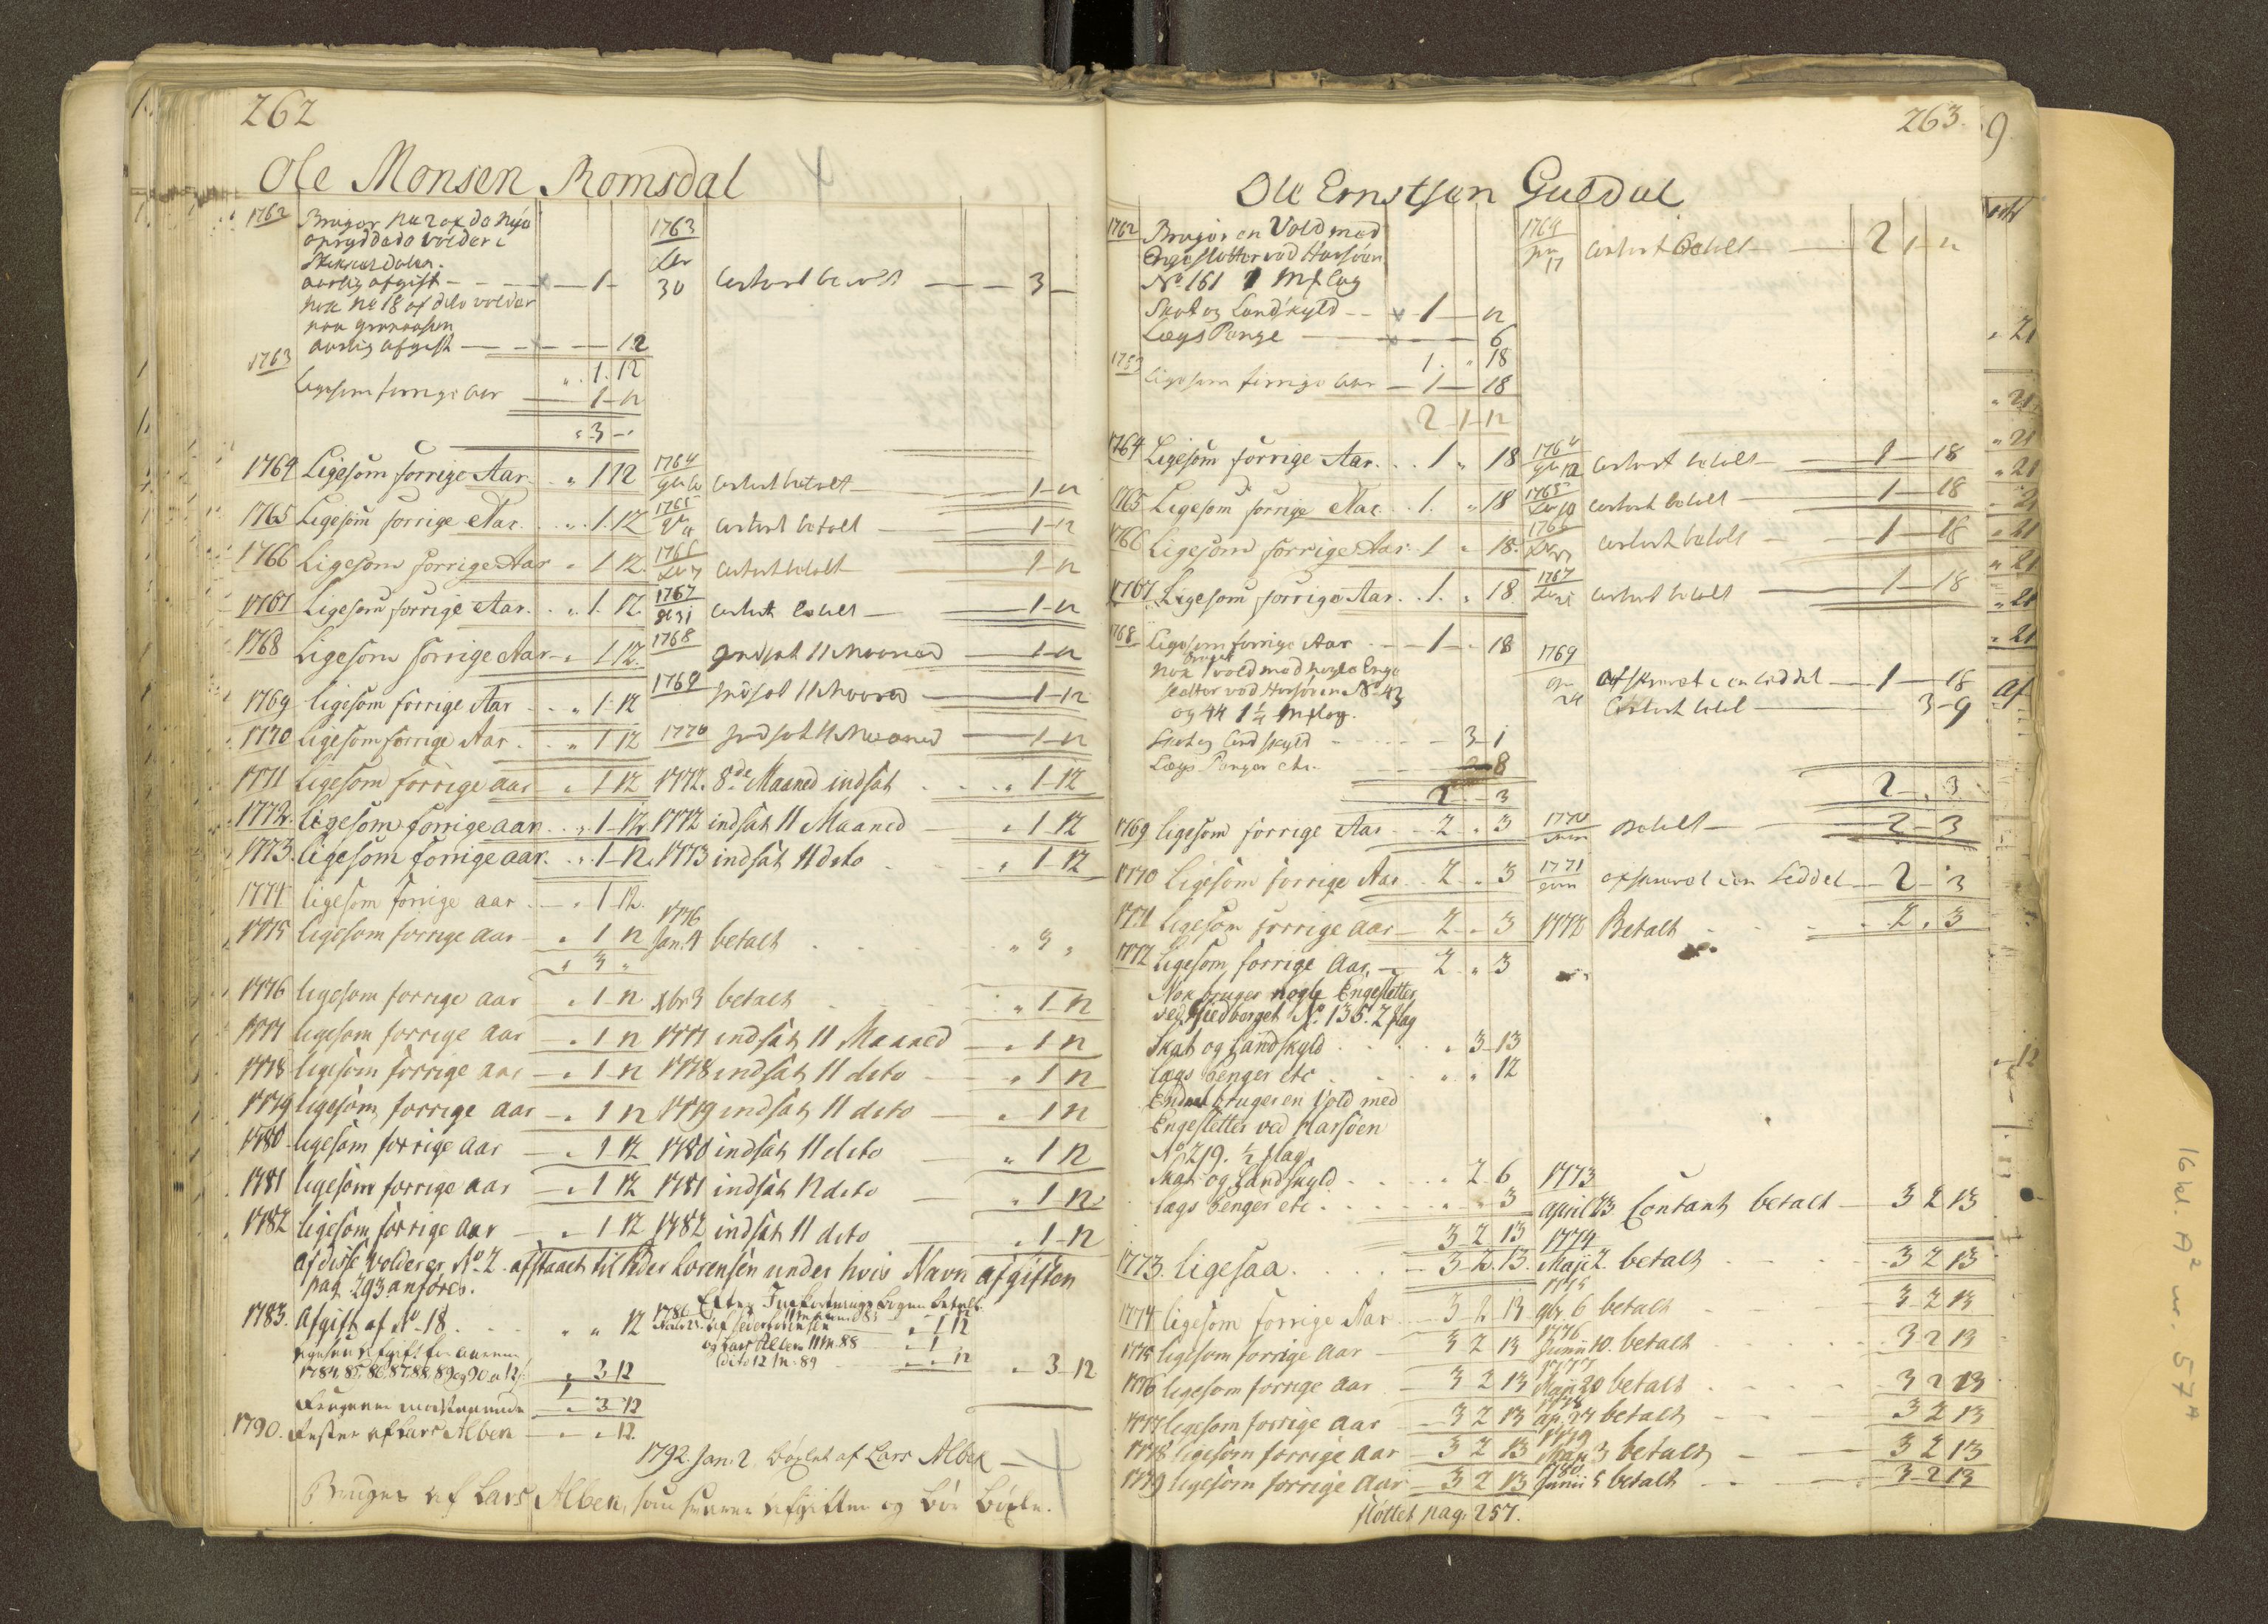 262
Ole Monsen Romsdal
1762 Bruger No 2 af de nye
opryddede volder i
aarlig afgift - 1 -
nok No 18 af dito volder
aarlig afgift - 12
" 1. 12
1763 Ligesom forrige Aar - 1 - 12
" 3 - "
1764 Ligesom forrige Aar. " 1 12
1765 Ligesom forrige Aar. " 1. 12
1766 Ligesom forrige Aar " 1 12.
1767 Ligesom forrige Aar. " 1. 12.
1768 Ligesom forrige Aar - " 1 12.
1769 ligesom forrige Aar " 1. 12
1770 Ligesom forrige Aar. " 1 12
1771 ligesom forrige aar " 1 12
1772. ligesom forrige aar " 1 - 12
1773. ligesom forrige aar. " 1 - 12.
1774 ligesom forrige aar - " 1 12.
1775 ligesom forrige aar - " 1 12
" 3 "
1776 ligesom forrige aar - " 1 - 12
1777 ligesom forrige aar - " 1 12
1778 ligesom forrige aar - " 1 - 12
1779 ligesom forrige aar - " 1 12
1780 ligesom forrige aar - " 1 12
1781 ligesom forrige aar - " 1 12
1782 ligesom forrige aar - " 1 12
1763
30 contant betalt - 3 -
1764 contant betalt - 1 - 12
1765 contant betalt - 1 - 12
1766 contant betalt 1 - 12
1767 contant betalt - 1 - 12
1768 indsat 11 Maaned - 1 - 12
1769 indsat 11 Maaned - 1 - 12
1770 indsat 11 Maaned - 1 - 12
1772. 8de Maaned indsat " 1 - 12
1772 indsat 11 Maaned - " 1 12
1773 indsat 11 dito " 1 12
1776
Jan. 4 betalt " 3 "
Xbr 3 betalt " 1 - 12
1777 indsat 11 Maaned - " 1 12
1778 indsat 11 dito - " 1 12
1779 indsat 11 dito - " 1 12
1780 indsat 11 dito - " 1 12
1781 indsat 12 dito - " 1 - 12
1782 indsat 11 dito " 1 - 12
af disse volder er No 2 afstaaet til Peder Lorensen under hvis Navn afgiften
pag. 293 anføres.
1783. Afgift af No 18 " " 12
1784, 85, 86, 87, 88, 89 og 90 a 12 " 3 12
" 3 12
1790. Fester af Lars Alben - " " 12.
1786
og Lars Alben 11 M. 88 " 1
dito 12 M. 89 " " 12 " 3 - 12
1792. Jan. 2 bøxlet af Lars Alben -
Bruges af Lars Alben, som svarer afgiften og bør bøxle.
263.
Ole Ernstsen Guldal
1762 Bruger en Vold med
Enge slotter ved Harsøen
No 161 1 Mklag
Skat og Landskyld - 1 - 12
Lægs Penge - 6
1. " 18
1763 ligesom forrige Aar - 1 - 18
2 - 1 - 12
1764 Ligesom forrige Aar. 1 " 18
1765 Ligesom forrige Aar. 1. " 18
1766 Ligesom forrige Aar. 1 " 18.
1767 Ligesom forrige Aar. 1. " 18
1768 Ligesom forrige Aar - 1 - 18
nok bruget 1 vold med nogle Enge
slotter ved Harsøen No 43
og 44 1 1/4 Mklag.
Skat og Landskyld - 3 - 1
Lægs Penger etc. - 8
2 - 3
1769 ligesom forrige Aar 2 " 3
1770 Ligesom forrige Aar 2 " 3
1771 ligesom forrige aar - 2 " 3
1772 ligesom forrige Aar. - 2 " 3
Nok bruger nogle Engesletter
No 135. 2 klag
Skat og Landskyld " 3 - 13
Lægs Penger etc " " 12
Endnu bruger en Vold med
Engesletter ved Harsøen
No 219. 1/2 klag
Skat og Landskyld " 2 - 6
Lægs Penger etc " " 3
3 2 13
1773. ligesaa. 3 - 2. 13.
1774 ligesom forrige Aar 3 2 13
1775 ligesom forrige aar - 3 2 13
1776 ligesom forrige aar - 3 2 13
1777 ligesom forrige aar - 3 2 13
1778 ligesom forrige aar - 3 2 13
1779 ligesom forrige aar - 3 2 13
1764
17 contant Betalt - 2 1 - 12
1764 contant betalt - 1 - 18
1765 contant betalt - 1 - 18
1766 contant betalt - 1 - 18
1767 contant betalt - 1 - 18
1769
24 afskrevet i en Seddel - 1 - 18
Contant betalt - 3 - 9
2 - " 3
1770 Betalt - 2 - 3
1771 afskrevet i en Seddel - 2 - 3
1772 Betalt - 2. 3
1773
april 23 Contant betalt - 3 2 13
1774
Maji 2. betalt - 3 2 13
1775
9br. 6 betalt - 3 2 13
1776
Junii 10. betalt 3 2 13
1777
Maji 20 betalt 3 2 13
1778
ap. 27 betalt - 3 2 13
1779
Maji 3 betalt - 3 2 13
1780.
Junii 5 betalt - 3 2 13
fløttet pag. 257.
16 kl. A2 nr. 57a